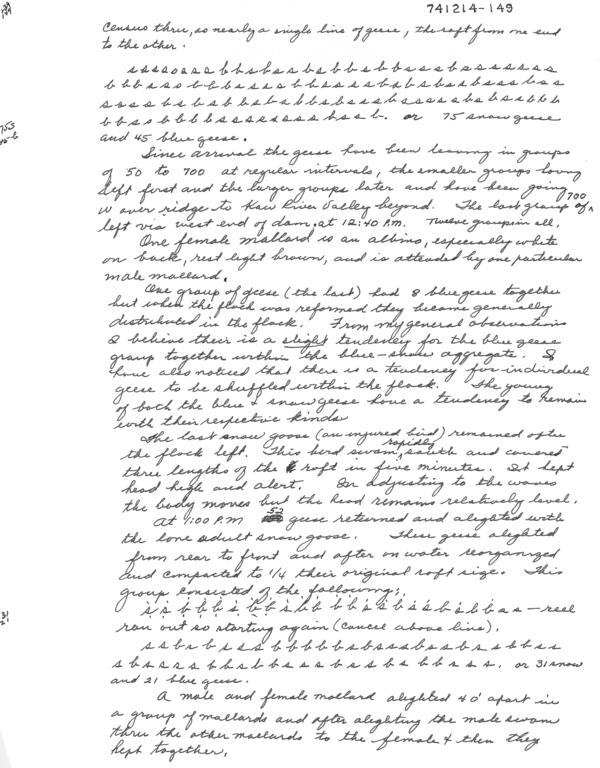 741214-149
Census thru, so nearly a single line of geese, the raft from one end
to the other.
and 45 blue geese. or 75 snow geese
Since arrival the geese have been leaving in groups
of 50 to 700 at regular intervals, the smaller groups having
left first and the larger groups later and have been going
W over ridge to Kaw River Valley beyond. The last group of 700
left via west end of dam at 12:40 P.M. Twelve groups in all.
One female mallard is an albino, especially white
on back, rest light brown, and is attended by one particular
male mallard.
One group of geese (the last) had 8 blue geese together
but when the flock was reformed they became generally
distributed in the flock. From my general observations
I believe their is a slight tendency for the blue geese
group together within the blue-snow aggregate. I
have also noticed that there is a tendency for individual
geese to be shuffled within the flock. The young
of both the blue & snow geese have a tendency to remain
with their respective kinds
The last snow goose (an injured bird) remained after
the flock left. This bird swam rapidly south and covered
three lengths of the raft in five minutes. It kept
head high and alert. In adjusting to the waves
the body moves but the head remains relatively level.
At 1:00 P.M 52 geese returned and alighted with
the lone adult snow goose. These geese alighted
from rear to front and after on water reorganized
and compacted to 1/4 their original raft size. This
group consisted of the following:
— reel
ran out so starting again (cancel above line).
or 31 snow
and 21 blue geese.
A male and female mallard alighted 40' apart in
a group of mallards and after alighting the male swam
thru the other mallards to the female & then they
kept together.